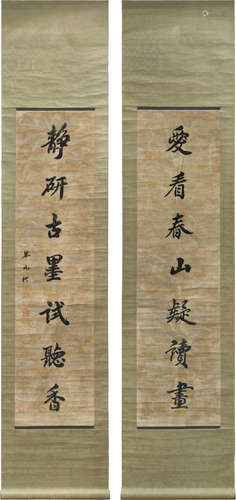 愛看春山疑讀畫
靜研古墨試聽香